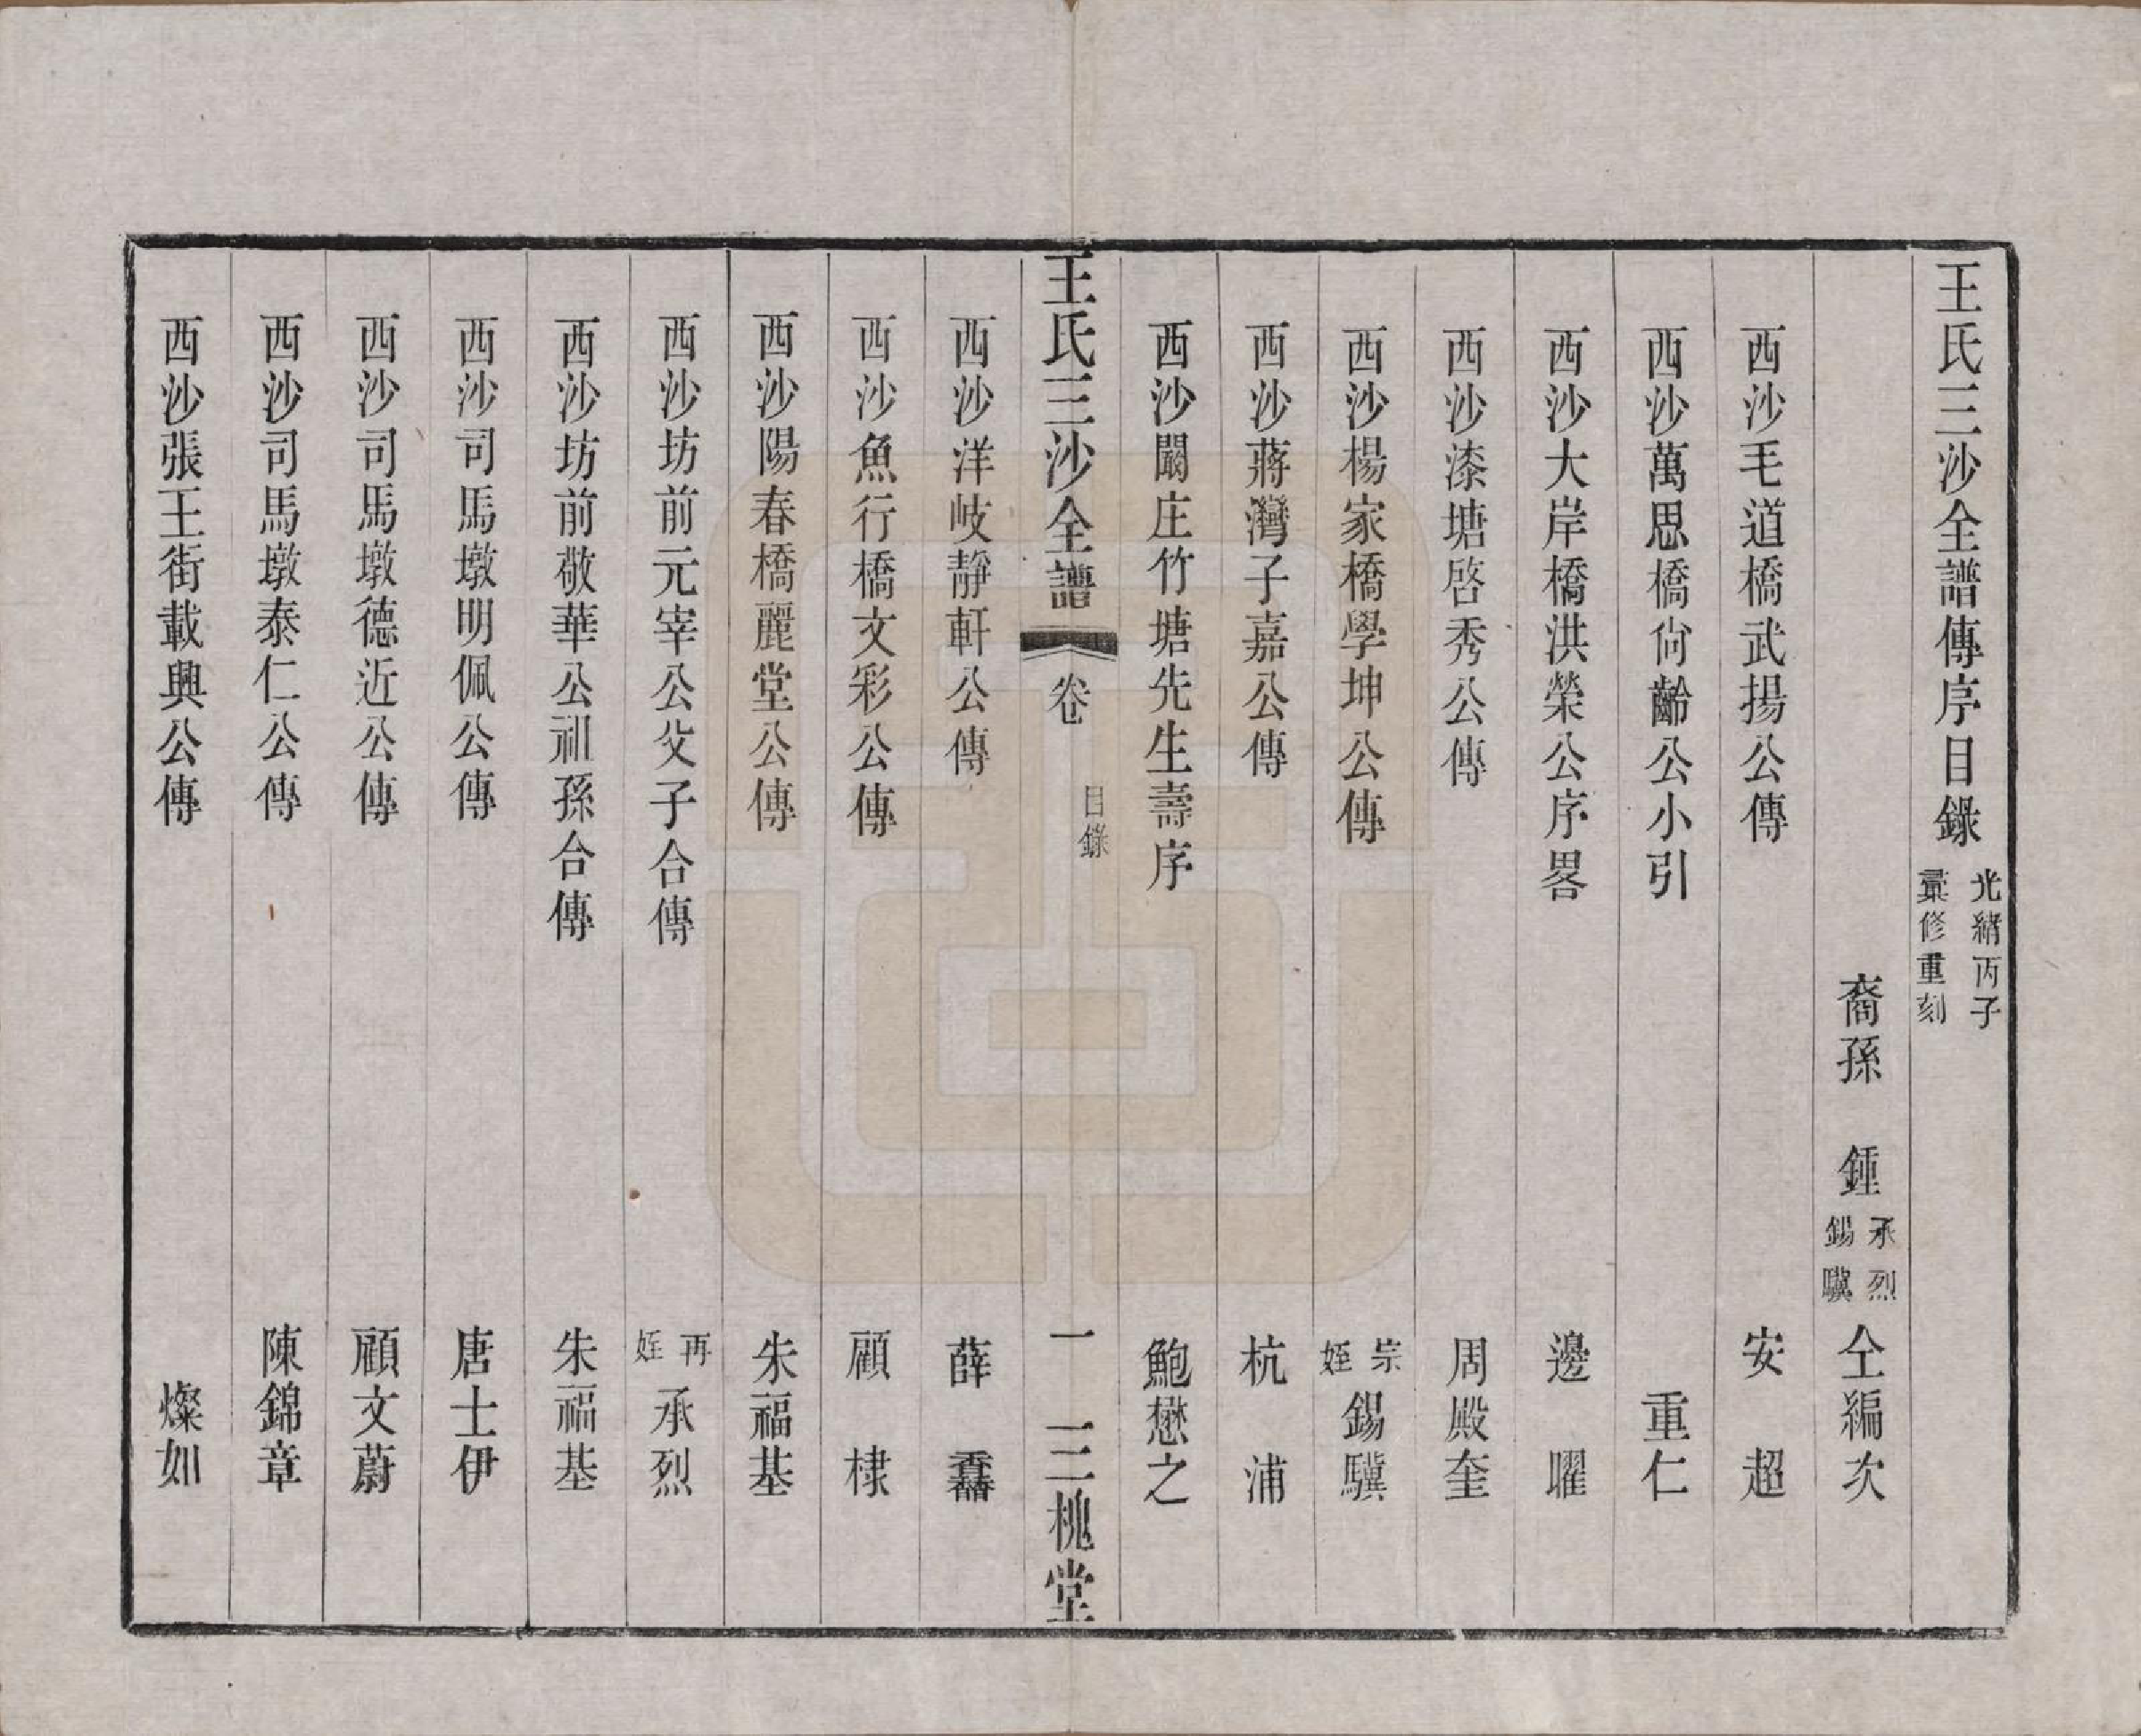 王氏三沙全譜傳序目錄 光緒丙子彚修重刻
裔孫 鍾 承烈 錫驥 仝編次
西沙毛道橋武揚公傳 安超
西沙萬思橋尙齡公小引 重仁
西沙大岸橋洪榮公序畧 邊曜
西沙漆塘啓秀公傳 周殿奎
西沙楊家橋學坤公傳 宗姪錫驥
西沙蔣灣子嘉公傳 杭浦
西沙闞庄竹塘先生壽序 鮑懋之
王氏三沙全譜 卷 目錄 一 三槐堂
西沙洋岐靜軒公傳 薛
西沙魚行橋文彩公傳 顧棣
西沙陽春橋麗堂公傳 朱福基
西沙坊前元宰公父子合傳 再姪承烈
西沙坊前敬華公祖孫合傳 朱福基
西沙司馬墩明佩公傳 唐士伊
西沙司馬墩德近公傳 顧文蔚
西沙司馬墩泰仁公傳 陳錦章
西沙張王街載興公傳 燦如